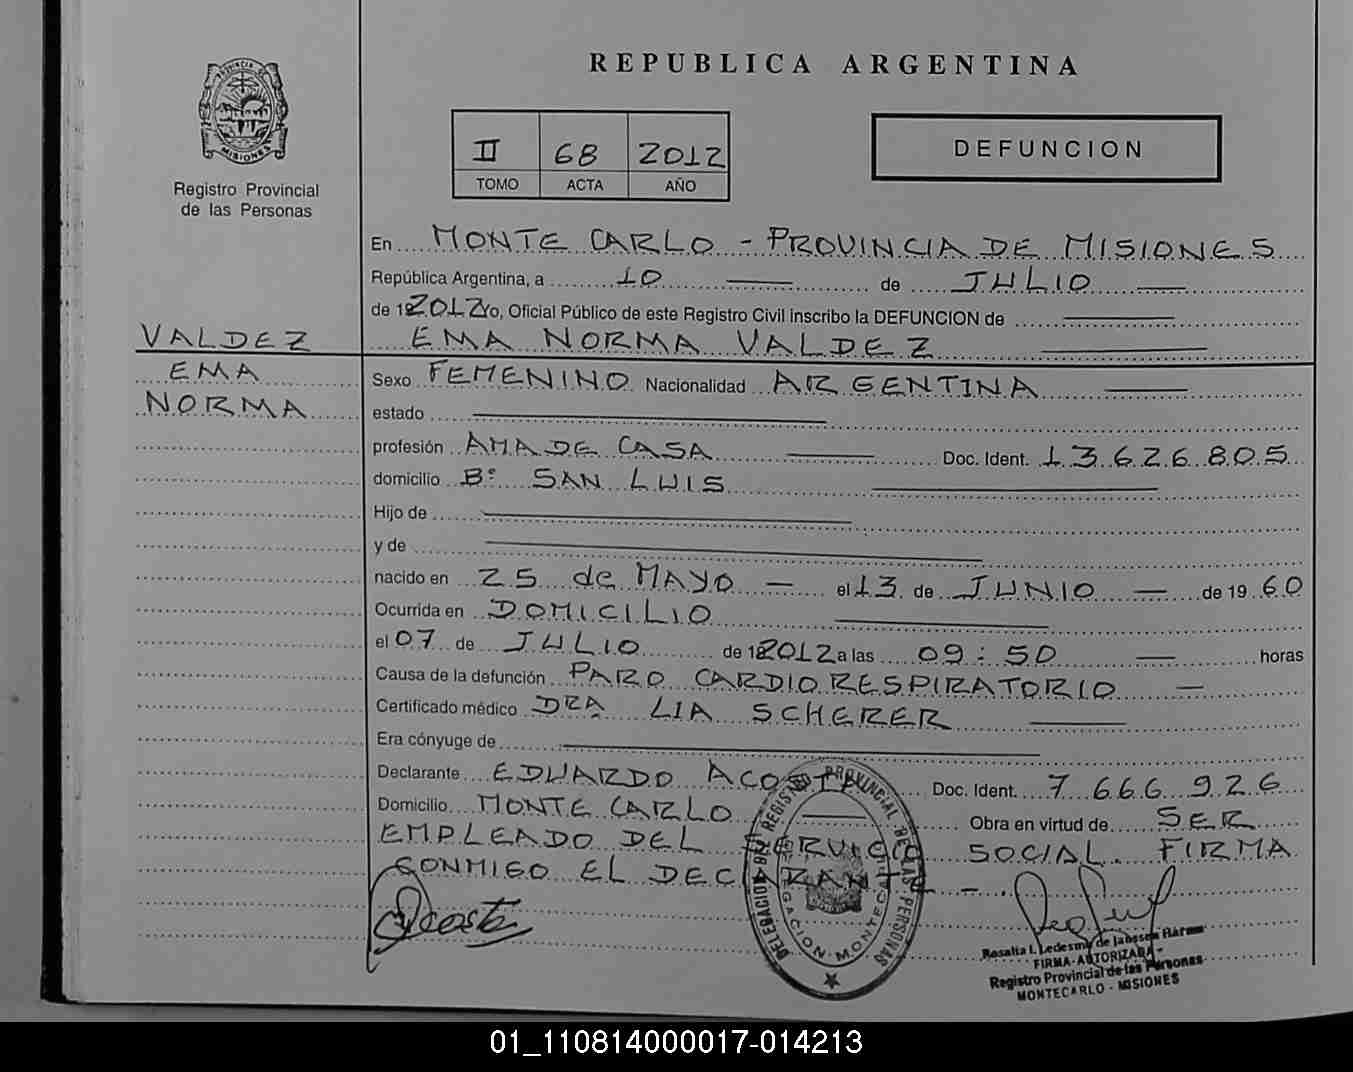 REPUBLICA ARGENTINA
PROVINCIA DE
MISIONES
Registro Provincial
de las Personas
II 68 2012
TOMO ACTA AÑO
DEFUNCION
En MONTE CARLO - PROVINCIA DE MISIONES
República Argentina, a 10 de JULIO
de 2012 yo, Oficial Público de este Registro Civil inscribo la DEFUNCION de
VALDEZ
EMA NORMA VALDEZ
EMA
NORMA
Sexo FEMENINO Nacionalidad ARGENTINA
estado
profesión AMA DE CASA Doc. Ident. 13.626.805
domicilio Bº SAN LUIS
Hijo de
y de
nacido en 25 de MAYO - el 13 de JUNIO - de 1960
Ocurrida en DOMICILIO
el 07 de JULIO de 2012 a las 09:50 - horas
Causa de la defunción PARO CARDIORESPIRATORIO -
Certificado médico DRA LIA SCHERER
Era cónyuge de
Declarante EDUARDO ACOSTA Doc. Ident. 7.666.926
Domicilio MONTE CARLO Obra en virtud de SER
EMPLEADO DEL SERVICIO SOCIAL. FIRMA
CONMIGO EL DECLARANTE -.
Acosta
DELEGACION DEL REGISTRO PROVINCIAL DE LAS PERSONAS
DELEGACION MONTECARLO
Rosalia I. Ledesma de Janssen Harms
FIRMA AUTORIZADA
Registro Provincial de las Personas
MONTECARLO - MISIONES
01_110814000017-014213